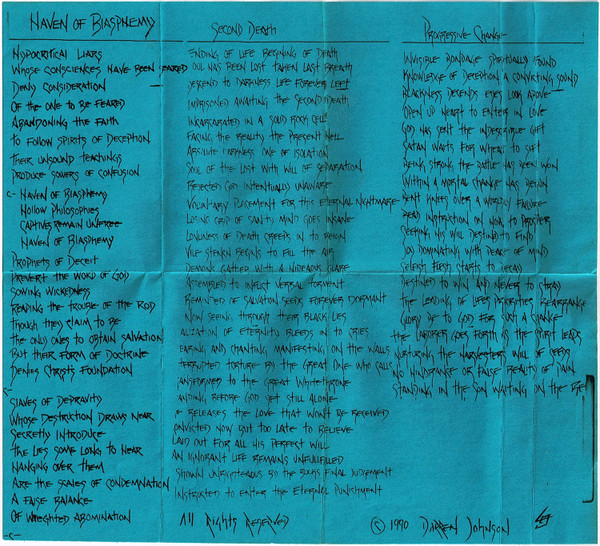 HAVEN OF BLASPHEMY
HYPOCRITICAL LIARS
WHOSE CONSCIENCES HAVE BEEN SEARED
DENY CONSIDERATION
OF THE ONE TO BE FEARED
ABANDONING THE FAITH
TO FOLLOW SPIRITS OF DECEPTION
THEIR UNSOUND TEACHINGS
PRODUCE SOWERS OF CONFUSION
C- HAVEN OF BLASPHEMY
HOLLOW PHILOSOPHIES
CAPTIVES REMAIN UNFREE
HAVEN OF BLASPHEMY
PROPHETS OF DECEIT
PREVERT THE WORD OF GOD
SOWING WICKEDNESS
REAPING THE TROUBLE OF THE ROD
THOUGH THEY CLAIM TO BE
THE ONLY ONES TO OBTAIN SALVATION
BUT THEIR FORM OF DOCTRINE
DENIES CHRISTS FOUNDATION
-C-
SLAVES OF DEPRAVITY
WHOSE DESTRUCTION DRAWS NEAR
SECRETLY INTRODUCE
THE LIES SOME LONG TO HEAR
HANGING OVER THEM
ARE THE SCALES OF CONDEMNATION
A FALSE BALANCE
OF WIEGHTED ABOMINATION
-C-
SECOND DEATH
ENDING OF LIFE BEGINING OF DEATH
OUL HAS BEEN LOST TAKEN LAST BREATH
DESCEND TO DARKNESS LIFE FOREVER LEFT
IMPRISONED AWAITING THE SECOND DEATH
INCARCERATED IN A SOLID ROCK CELL
FACING THE REALITY THE PRESENT HELL
ABSOLUTE DARKNESS ONE OF ISOLATION
SOUL OF THE LOST WITH WILL OF SEPARATION
REJECTED GOD INTENTIONALLY UNAWARE
VOLUNTARY PLACEMENT FOR THIS ETERNAL NIGHTMARE
LOSING GRIP OF SANITY MIND GOES INSANE
LONLINESS OF DEATH CREEPS IN TO REIGN
VILE STENCH BEGINS TO FILL THE AIR
DEMONS GATHER WITH A HIDEOUS GLARE
ASSEMBLED TO INFLICT VERBAL TORMENT
REMINDED OF SALVATION SEEDS FOREVER DORMANT
NOW SEEING THROUGH THEIR BLACK LIES
ALIZATION OF ETERNITY BLEEDS IN TO CRIES
EARING AND CHANTING MANIFESTING ON THE WALLS
TERRUPTED TORTURE BY THE GREAT ONE WHO CALLS
ANSFORMED TO THE GREAT WHITE THRONE
ANDING BEFORE GOD YET STILL ALONE
E RELEASES THE LOVE THAT WON'T BE RECEIVED
CONVICTED NOW BUT TOO LATE TO BELIEVE
LAID OUT FOR ALL HIS PERFECT WILL
AN IGNORANT LIFE REMAINS UNFULFILLED
SHOWN UNRIGHTEROUS BY THE BOOKS FINAL JUDGEMENT
INSTRUCTED TO ENTER THE ETERNAL PUNISHMENT
PROGRESSIVE CHANGE
INVISIBLE BONDAGE SPIRITUALLY FOUND
KNOWLEDGE OF DECEPTION A CONVICTING SOUND
BLACKNESS DEPENDS EYES LOOK ABOVE
OPEN UP HEART TO ENTER IN LOVE
GOD HAS SENT THE INDESCRIBLE GIFT
SATAN WAITS FOR WHEAT TO SIFT
BEING STRONG THE BATTLE HAS BEEN WON
WITHIN A MORTAL CHANGE HAS BEGUN
BENT KNEES OVER A WORLDLY FAILURE
READ INSTRUCTION ON HOW TO PROSPER
SEEKING HIS WILL DESTINED TO FIND
JOY DOMINATING WITH PEACE OF MIND
SELFISH FIRST STARTS TO DECAY
DESTINED TO WIN AND NEVER TO STRAY
THE LEADING OF LIFES PRIORITIES REARRANGE
GLORY UP TO GOD FOR SUCH A CHANGE
THE LABORER GOES FORTH AS THE SPIRIT LEADS
NURTURING THE HARVESTERS WILL OF SEEDS
NO HINDRANCE OR FALSE REALITY OF PAIN
STANDING IN THE SON WAITING ON THE
ALL RIGHTS RESERVED
© 1990 DARREN JOHNSON